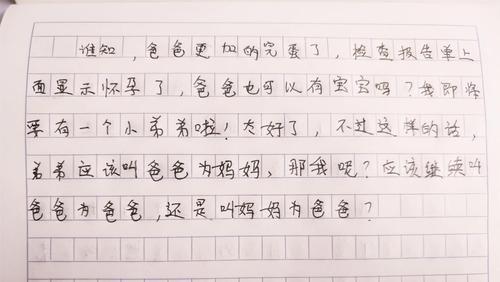 谁知，爸爸更加的完蛋了，检查报告单上
面显示怀孕了，爸爸也可以有宝宝吗？我即将
要有一个小弟弟啦！太好了，不过这样的话，
弟弟应该叫爸爸为妈妈，那我呢？应该继续叫
爸爸为爸爸，还是叫妈妈为爸爸？